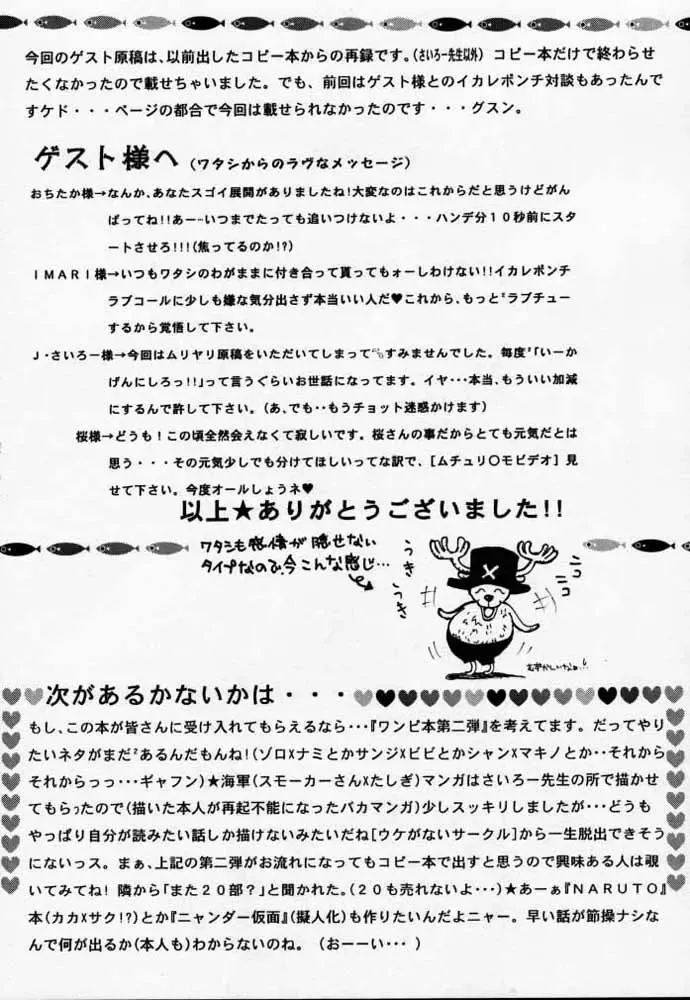 今回のゲスト原稿は、以前出したコピー本からの再録です。(さいろー先生以外) コピー本だけで終わらせ
たくなかったので載せちゃいました。でも、前回はゲスト様とのイカレポンチ対談もあったんで
すケド・・・ページの都合で今回は載せられなかったのです・・・グスン。
ゲスト様へ (ワタシからのラヴなメッセージ)
おちたか様→なんか、あなたスゴイ展開がありましたね!大変なのはこれからだと思うけどがん
ばってね!!あー…いつまでたっても追いつけないよ・・・ハンデ分10秒前にスタ
ートさせろ!!!(焦ってるのか!?)
IMARI様→いつもワタシのわがままに付き合って貰ってもォーしわけない!!イカレポンチ
ラブコールに少しも嫌な気分出さず本当いい人だ♥これから、もっど〝ラブチュー
するから覚悟して下さい。
J・さいろー様→今回はムリヤリ原稿をいただいてしまって💦すみませんでした。毎度〝「いーか
げんにしろっ!!」って言うぐらいお世話になってます。イヤ・・・本当、もういい加減
にするんで許して下さい。(あ、でも・・もうチョット迷惑かけます)
桜様→どうも!この頃全然会えなくて寂しいです。桜さんの事だからとても元気だとは
思う・・・その元気少しでも分けてほしいってな訳で、[ムチュリ〇モビデオ]見
せて下さい。今度オールしょうネ♥
以上★ありがとうございました!!
ワタシも感情が隠せない
タイプなので、今こんな感じ…
うき
うき
ニコ
ニコ
むずかしいなぁ…!
次があるかないかは・・・
もし、この本が皆さんに受け入れてもらえるなら・・・『ワンピ本第二弾』を考えてます。だってやり
たいネタがまだ〝あるんだもんね!(ゾロ×ナミとかサンジ×ビビとかシャン×マキノとか・・それから
それからっっ・・・ギャフン)★海軍(スモーカーさん×たしぎ)マンガはさいろー先生の所で描かせ
てもらったので(描いた本人が再起不能になったバカマンガ)少しスッキリしましたが・・・どうも
やっぱり自分が読みたい話しか描けないみたいだね[ウケがないサークル]から一生脱出できそう
にないっス。まぁ、上記の第二弾がお流れになってもコピー本で出すと思うので興味ある人は覗
いてみてね!隣から「また20部?」と聞かれた。(20も売れないよ・・・)★あーぁ『NARUTO』
本(カカ×サク!?)とか『ニャンダー仮面』(擬人化)も作りたいんだよニャー。早い話が節操ナシな
んで何が出るか(本人も)わからないのね。(おーーい・・・)